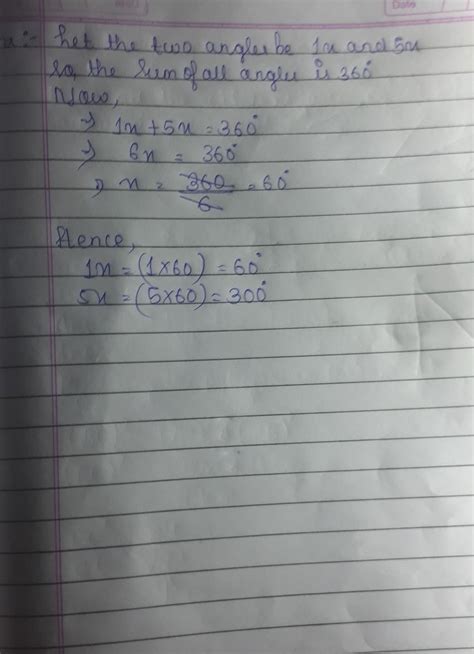 Date
:- Let the two angles be 1x and 5x
so, the sum of all angles is 360°
Now,
⇒ 1x + 5x = 360°
⇒ 6x = 360°
⇒ x = 360/6 = 60°
Hence,
1x = (1×60) = 60°
5x = (5×60) = 300°